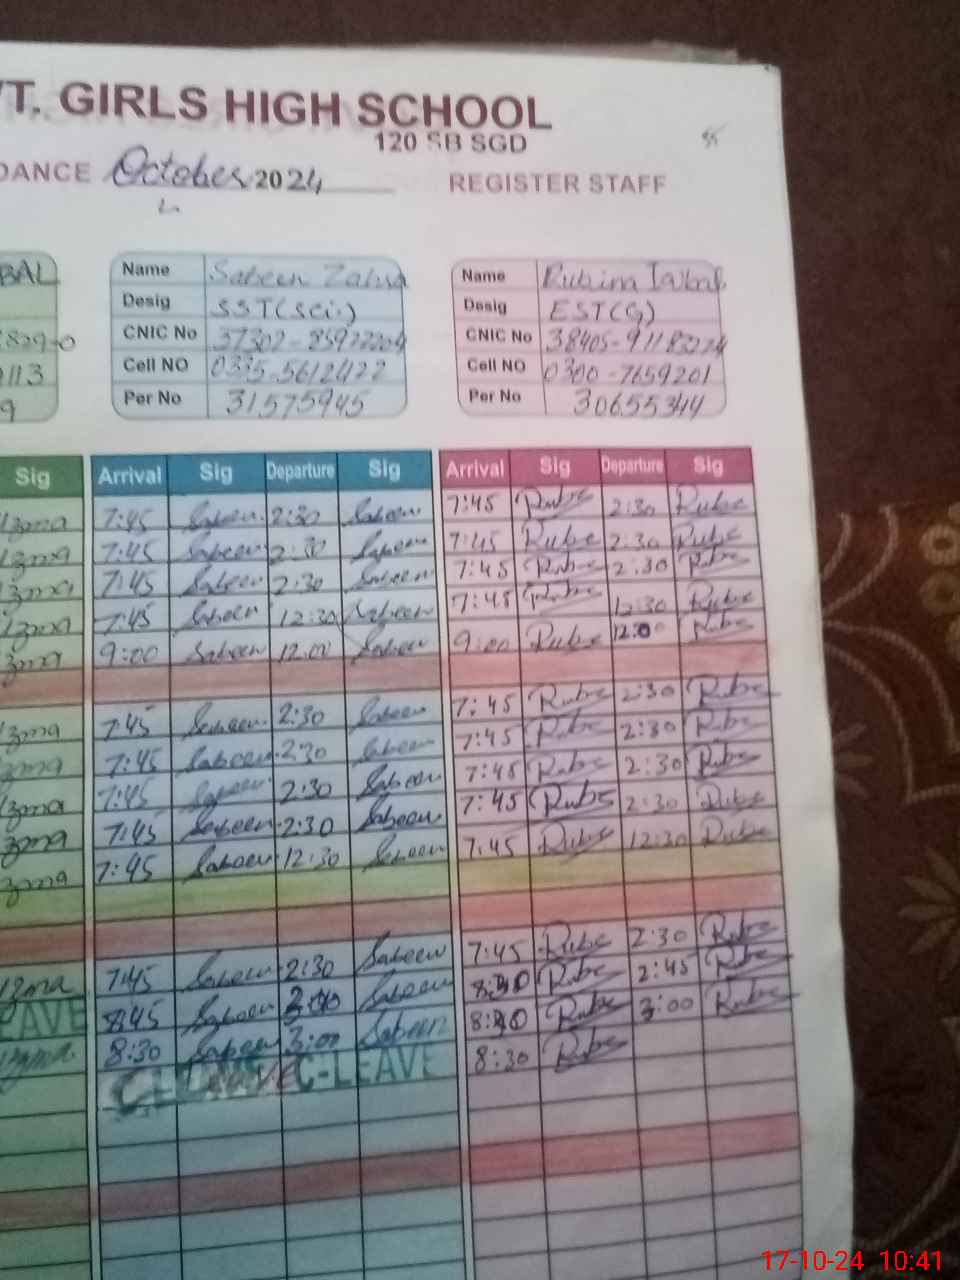 VT. GIRLS HIGH SCHOOL
120 SB SGD
DANCE October 2024 REGISTER STAFF
BAL
829-0
113
9
Name Sabeen Zahra
Desig SST(Sci.)
CNIC No
Cell NO 0335-5612422
Per No 31575945
Name Rubina Iqbal
Desig EST(G)
CNIC No
Cell NO 0300-7659201
Per No 30655344
Sig Arrival Sig Departure Sig Arrival Sig Departure Sig
7:45 Sabeen 2:30 Sabeen 7:45 Rube 2:30 Rube
7:45 Sabeen 2:30 Sabeen 7:45 Rube 2:30 Rube
7:45 Sabeen 2:30 Sabeen 7:45 Rube 2:30 Rube
7:45 Sabeen 12:30 Sabeen 7:45 Rube 12:30 Rube
9:00 Sabeen 12:00 Sabeen 9:00 Rube 12:00 Rube
7:45 Sabeen 2:30 Sabeen 7:45 Rube 2:30 Rube
7:45 Sabeen 2:30 Sabeen 7:45 Rube 2:30 Rube
7:45 Sabeen 2:30 Sabeen 7:45 Rube 2:30 Rube
7:45 Sabeen 2:30 Sabeen 7:45 Rube 2:30 Rube
7:45 Sabeen 12:30 Sabeen 7:45 Rube 12:30 Rube
7:45 Sabeen 2:30 Sabeen 7:45 Rube 2:30 Rube
EAVE 8:45 Sabeen Sabeen Rube 2:45 Rube
8:30 Sabeen 3:00 Sabeen Rube 3:00 Rube
Leave C-LEAVE 8:30 Rube
17-10-24 10:41